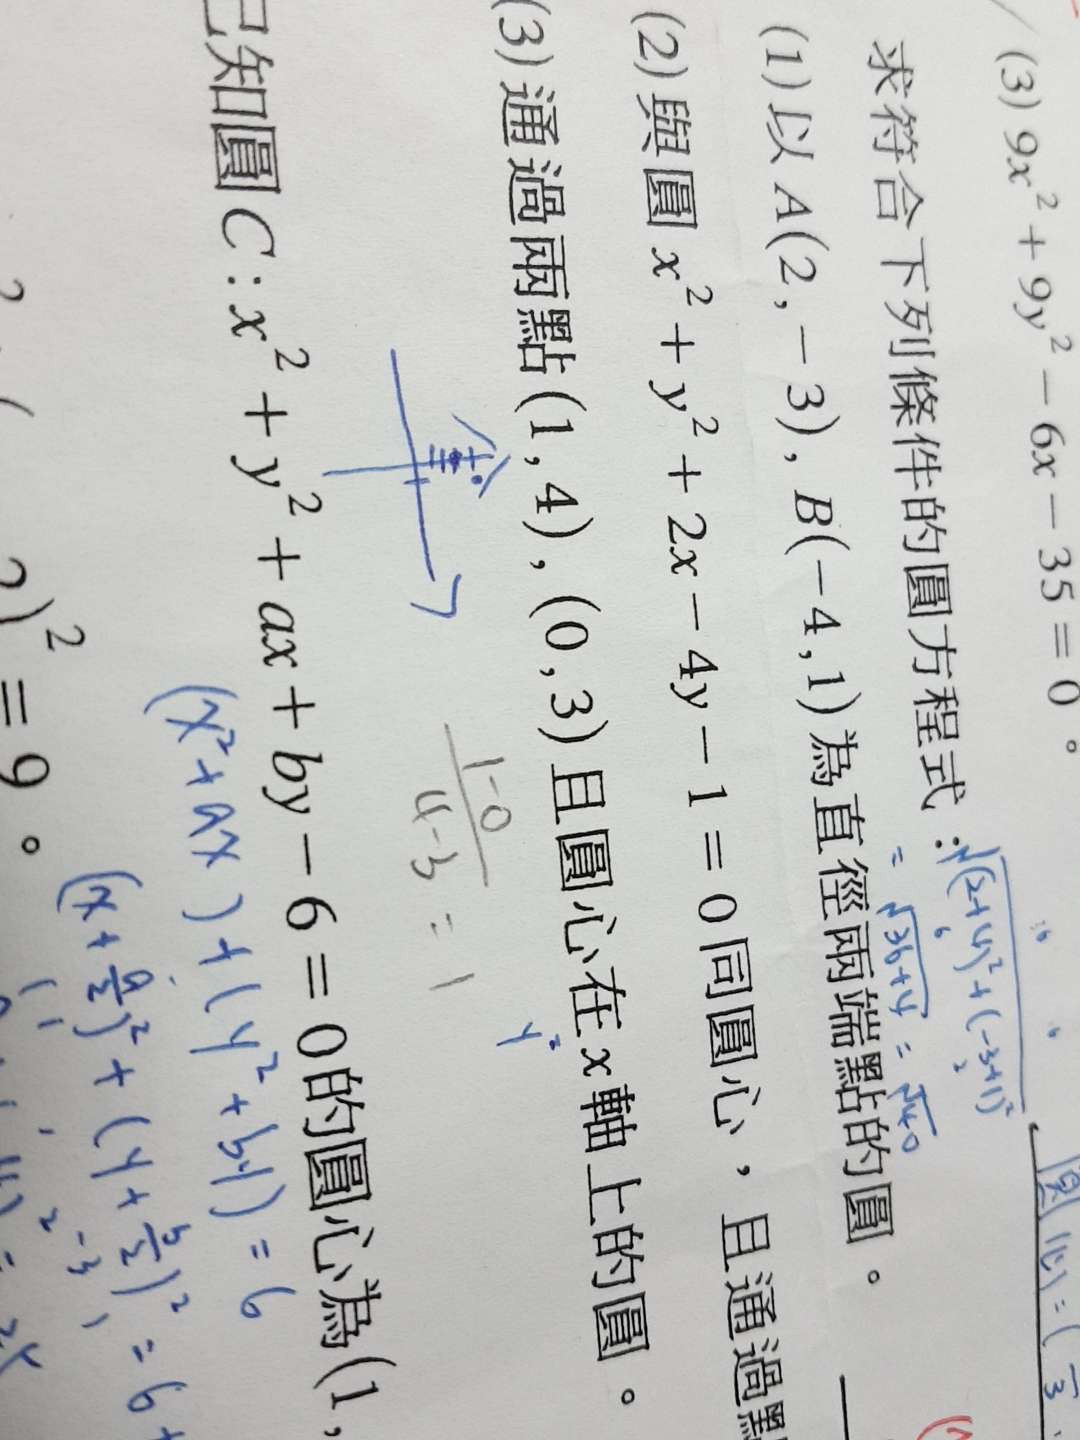 (3) 9x² + 9y² − 6x − 35 = 0。
求符合下列條件的圓方程式：
√(2+4)²+(-3+1)²
= √36+4 = √40
(1) 以 A(2, −3), B(−4, 1) 為直徑兩端點的圓。
(2) 與圓 x² + y² + 2x − 4y − 1 = 0 同圓心，且通過點
(3) 通過兩點 (1, 4), (0, 3) 且圓心在 x 軸上的圓。
1-0
4-3 = 1
已知圓 C : x² + y² + ax + by − 6 = 0 的圓心為 (1,
(x²+ax)+(y²+by) = 6
(x+a/2)²+(y+b/2)² = 6+
)² = 9。